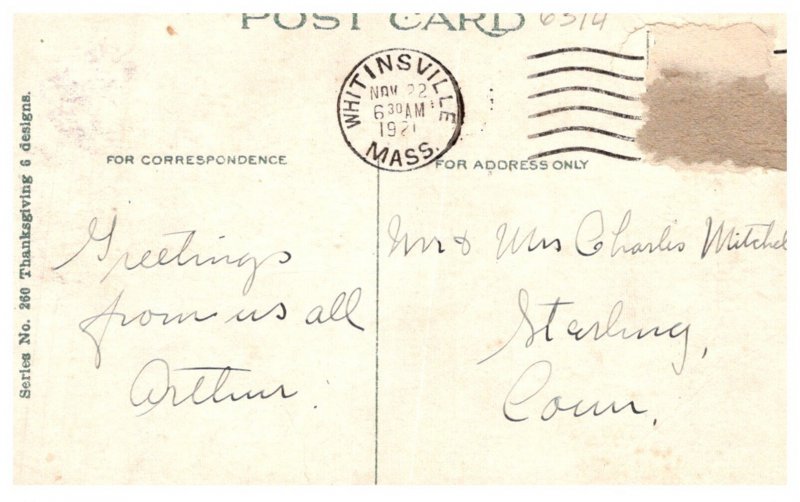 POST CARD 6314
WHITINSVILLE
NOV 22
6 30 AM
1921
MASS.
FOR CORRESPONDENCE
FOR ADDRESS ONLY
Series No. 260 Thanksgiving 6 designs.
Greetings
from us all
Arthur.
Mr & Mrs Charles Mitchel
Sterling,
Conn.